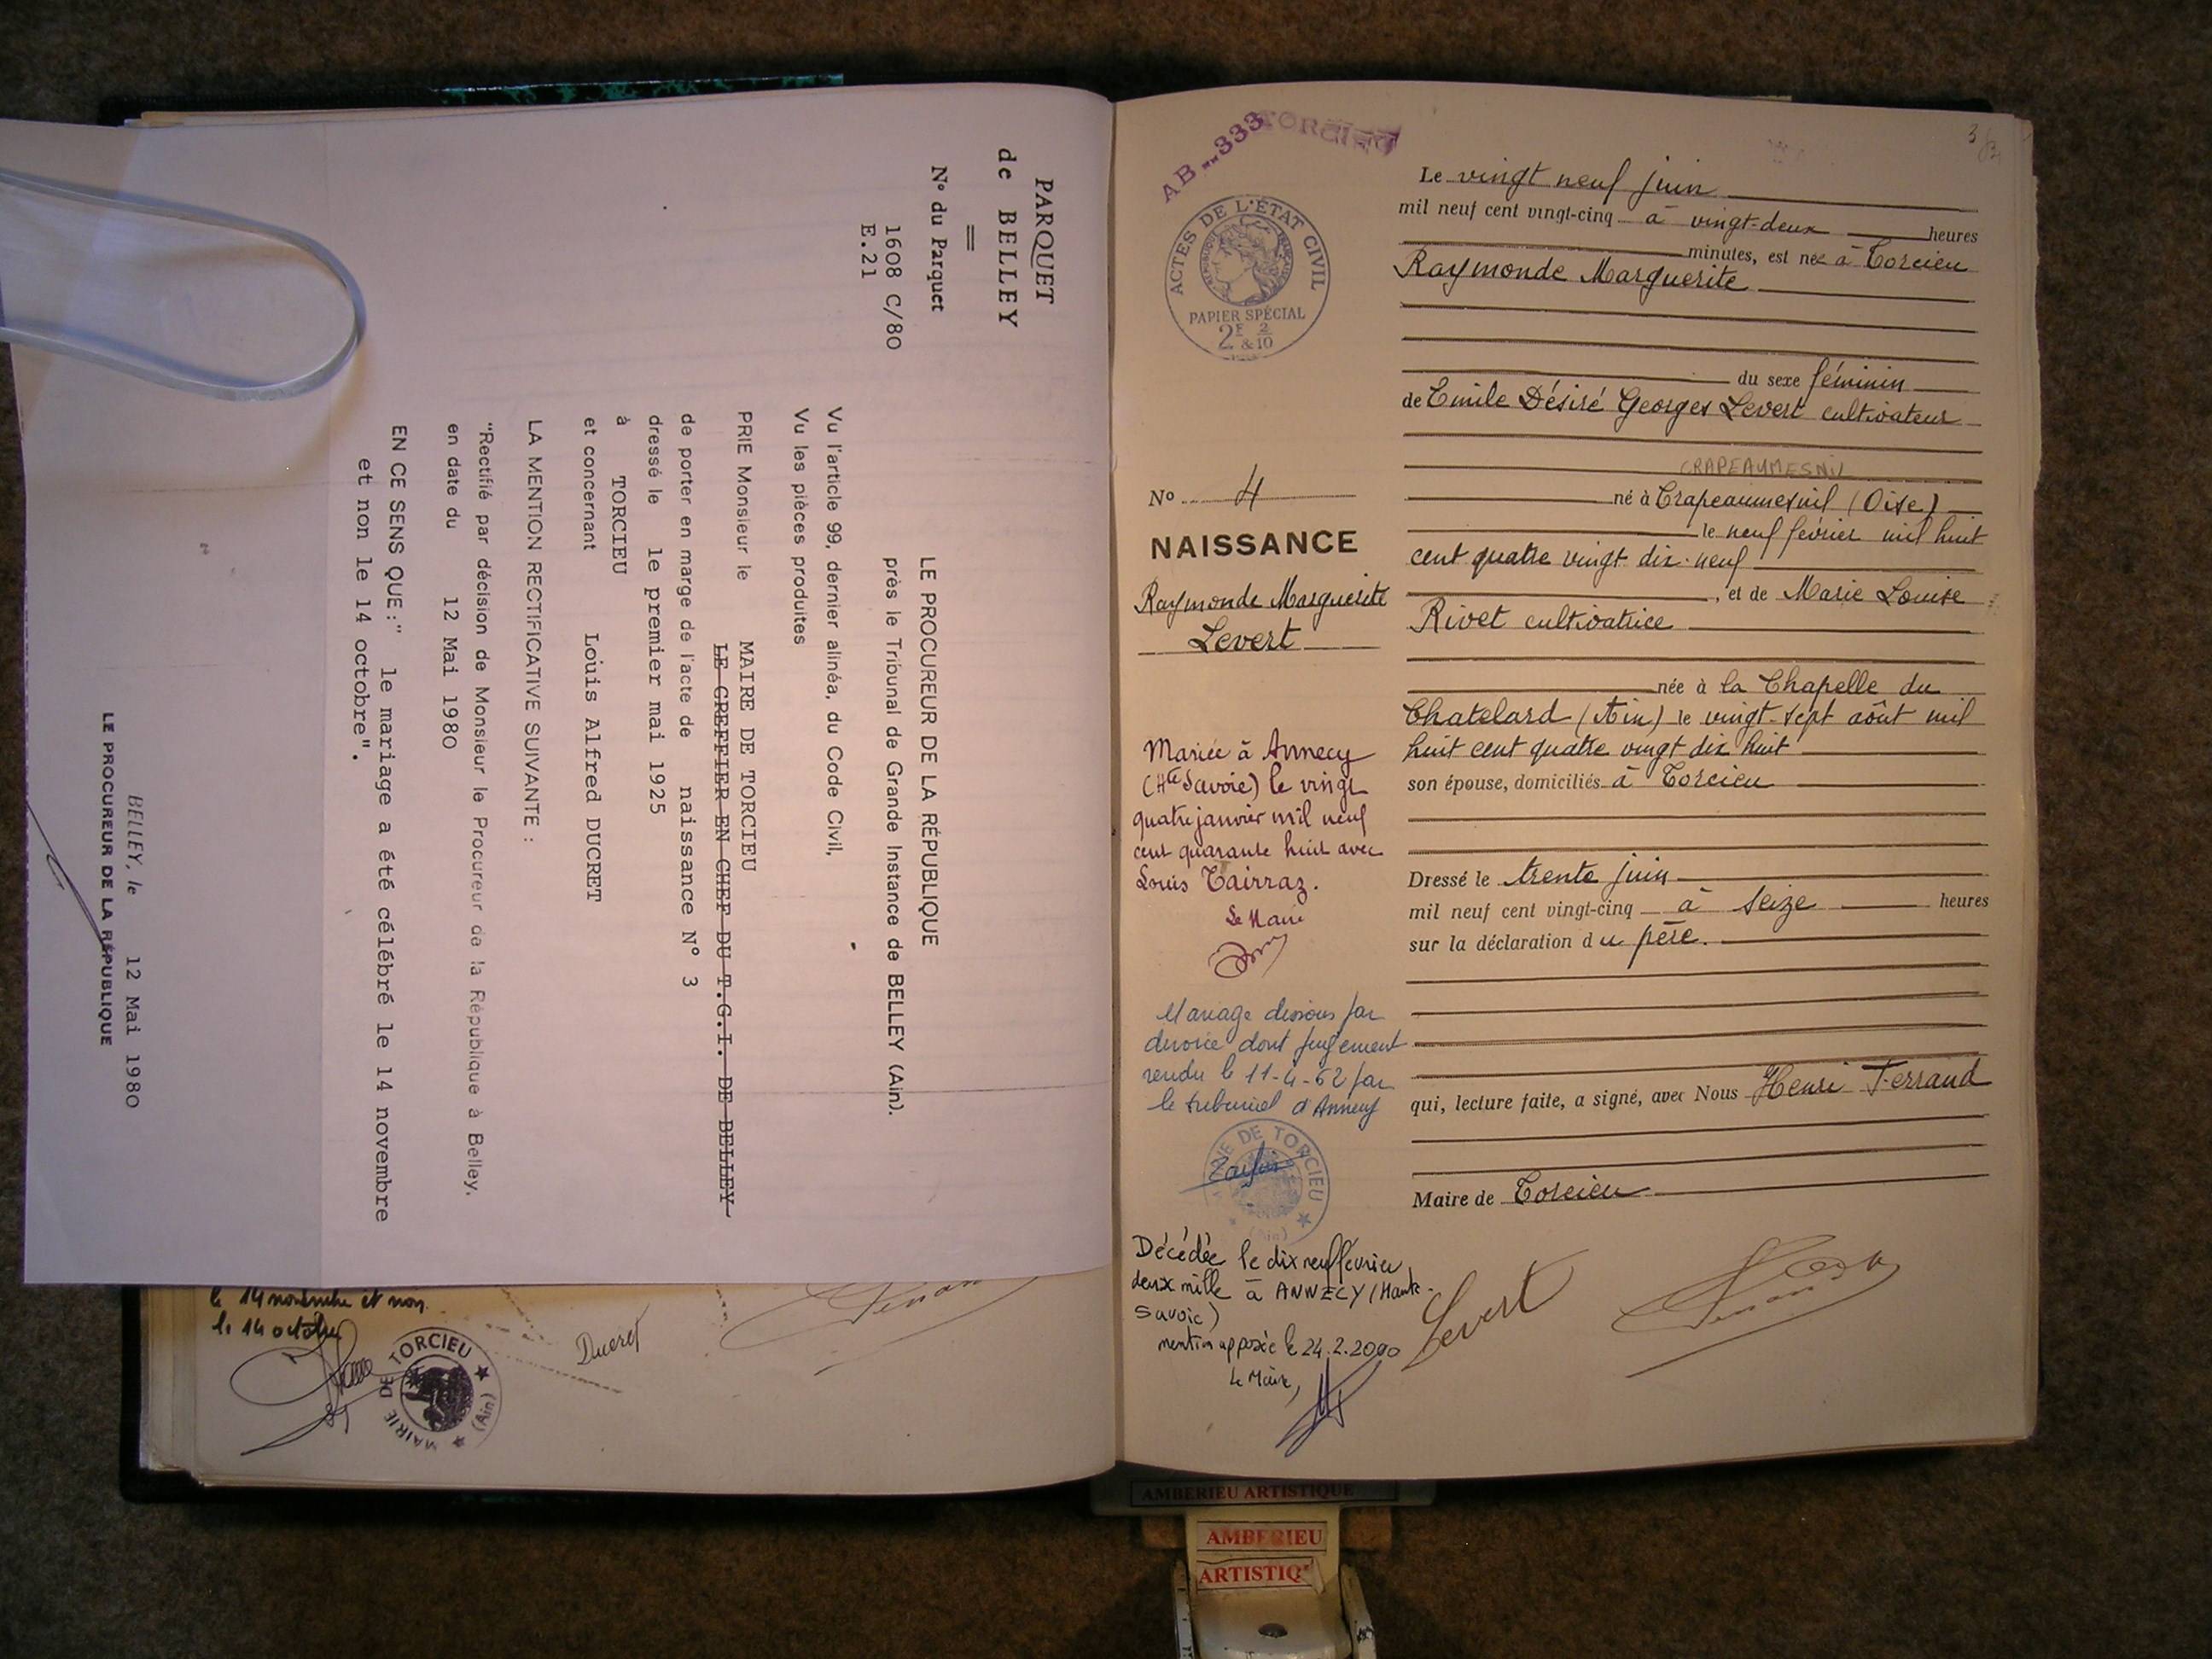 PARQUET
de BELLEY
N° du Parquet
1608 C/80
E.21
LE PROCUREUR DE LA RÉPUBLIQUE
près le Tribunal de Grande Instance de BELLEY (Ain).
Vu l'article 99, dernier alinéa, du Code Civil,
Vu les pièces produites
PRIE Monsieur le MAIRE DE TORCIEU
LE GREFFIER EN CHEF DU T.G.I. DE BELLEY
de porter en marge de l'acte de naissance N° 3
dressé le le premier mai 1925
à TORCIEU
et concernant Louis Alfred DUCRET
LA MENTION RECTIFICATIVE SUIVANTE :
"Rectifié par décision de Monsieur le Procureur de la République à Belley,
en date du 12 Mai 1980
EN CE SENS QUE :" le mariage a été célébré le 14 novembre
et non le 14 octobre".
BELLEY, le 12 Mai 1980
LE PROCUREUR DE LA RÉPUBLIQUE
le 14 novembre et non
le 14 octobre
MAIRIE DE TORCIEU
(Ain)
Ducret
AB 333
TORCIEU
ACTES DE L'ÉTAT CIVIL
PAPIER SPÉCIAL
2F 2
& 10
No 4
NAISSANCE
Raymonde Marguerite
Levert
Mariée à Annecy
(Hte Savoie) le vingt
quatre janvier mil neuf
cent quarante huit avec
Louis Tairraz.
Le Maire
Mariage dissous par
divorce dont jugement
rendu le 11-4-62 par
le tribunal d'Annecy
MAIRIE DE TORCIEU
(Ain)
Décédée le dix neuf février
deux mille à ANNECY (Haute-
Savoie)
mention apposée le 24.2.2000
Le Maire,
3
Le vingt neuf juin
mil neuf cent vingt-cinq à vingt-deux heures
minutes, est née à Torcieu
Raymonde Marguerite
du sexe féminin
de Emile Désiré Georges Levert cultivateur
CRAPEAUMESNIL
né à Crapeaumesnil (Oise)
le neuf février mil huit
cent quatre vingt dix-neuf
, et de Marie Louise
Rivet cultivatrice
née à la Chapelle du
Chatelard (Ain) le vingt-sept août mil
huit cent quatre vingt dix huit
son épouse, domiciliés à Torcieu
Dressé le trente juin
mil neuf cent vingt-cinq à seize heures
sur la déclaration du père.
qui, lecture faite, a signé, avec Nous Henri Ferrand
Maire de Torcieu
Levert
AMBERIEU ARTISTIQUE
AMBERIEU
ARTISTIQ